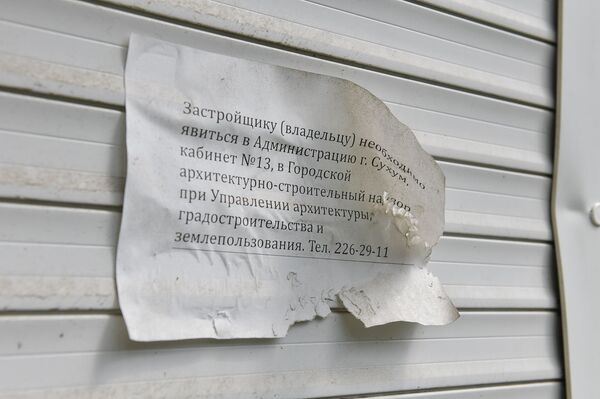 Застройщику (владельцу) необходимо
явиться в Администрацию г. Сухум,
кабинет №13, в Городской
архитектурно-строительный надзор
при Управлении архитектуры,
градостроительства и
землепользования. Тел. 226-29-11